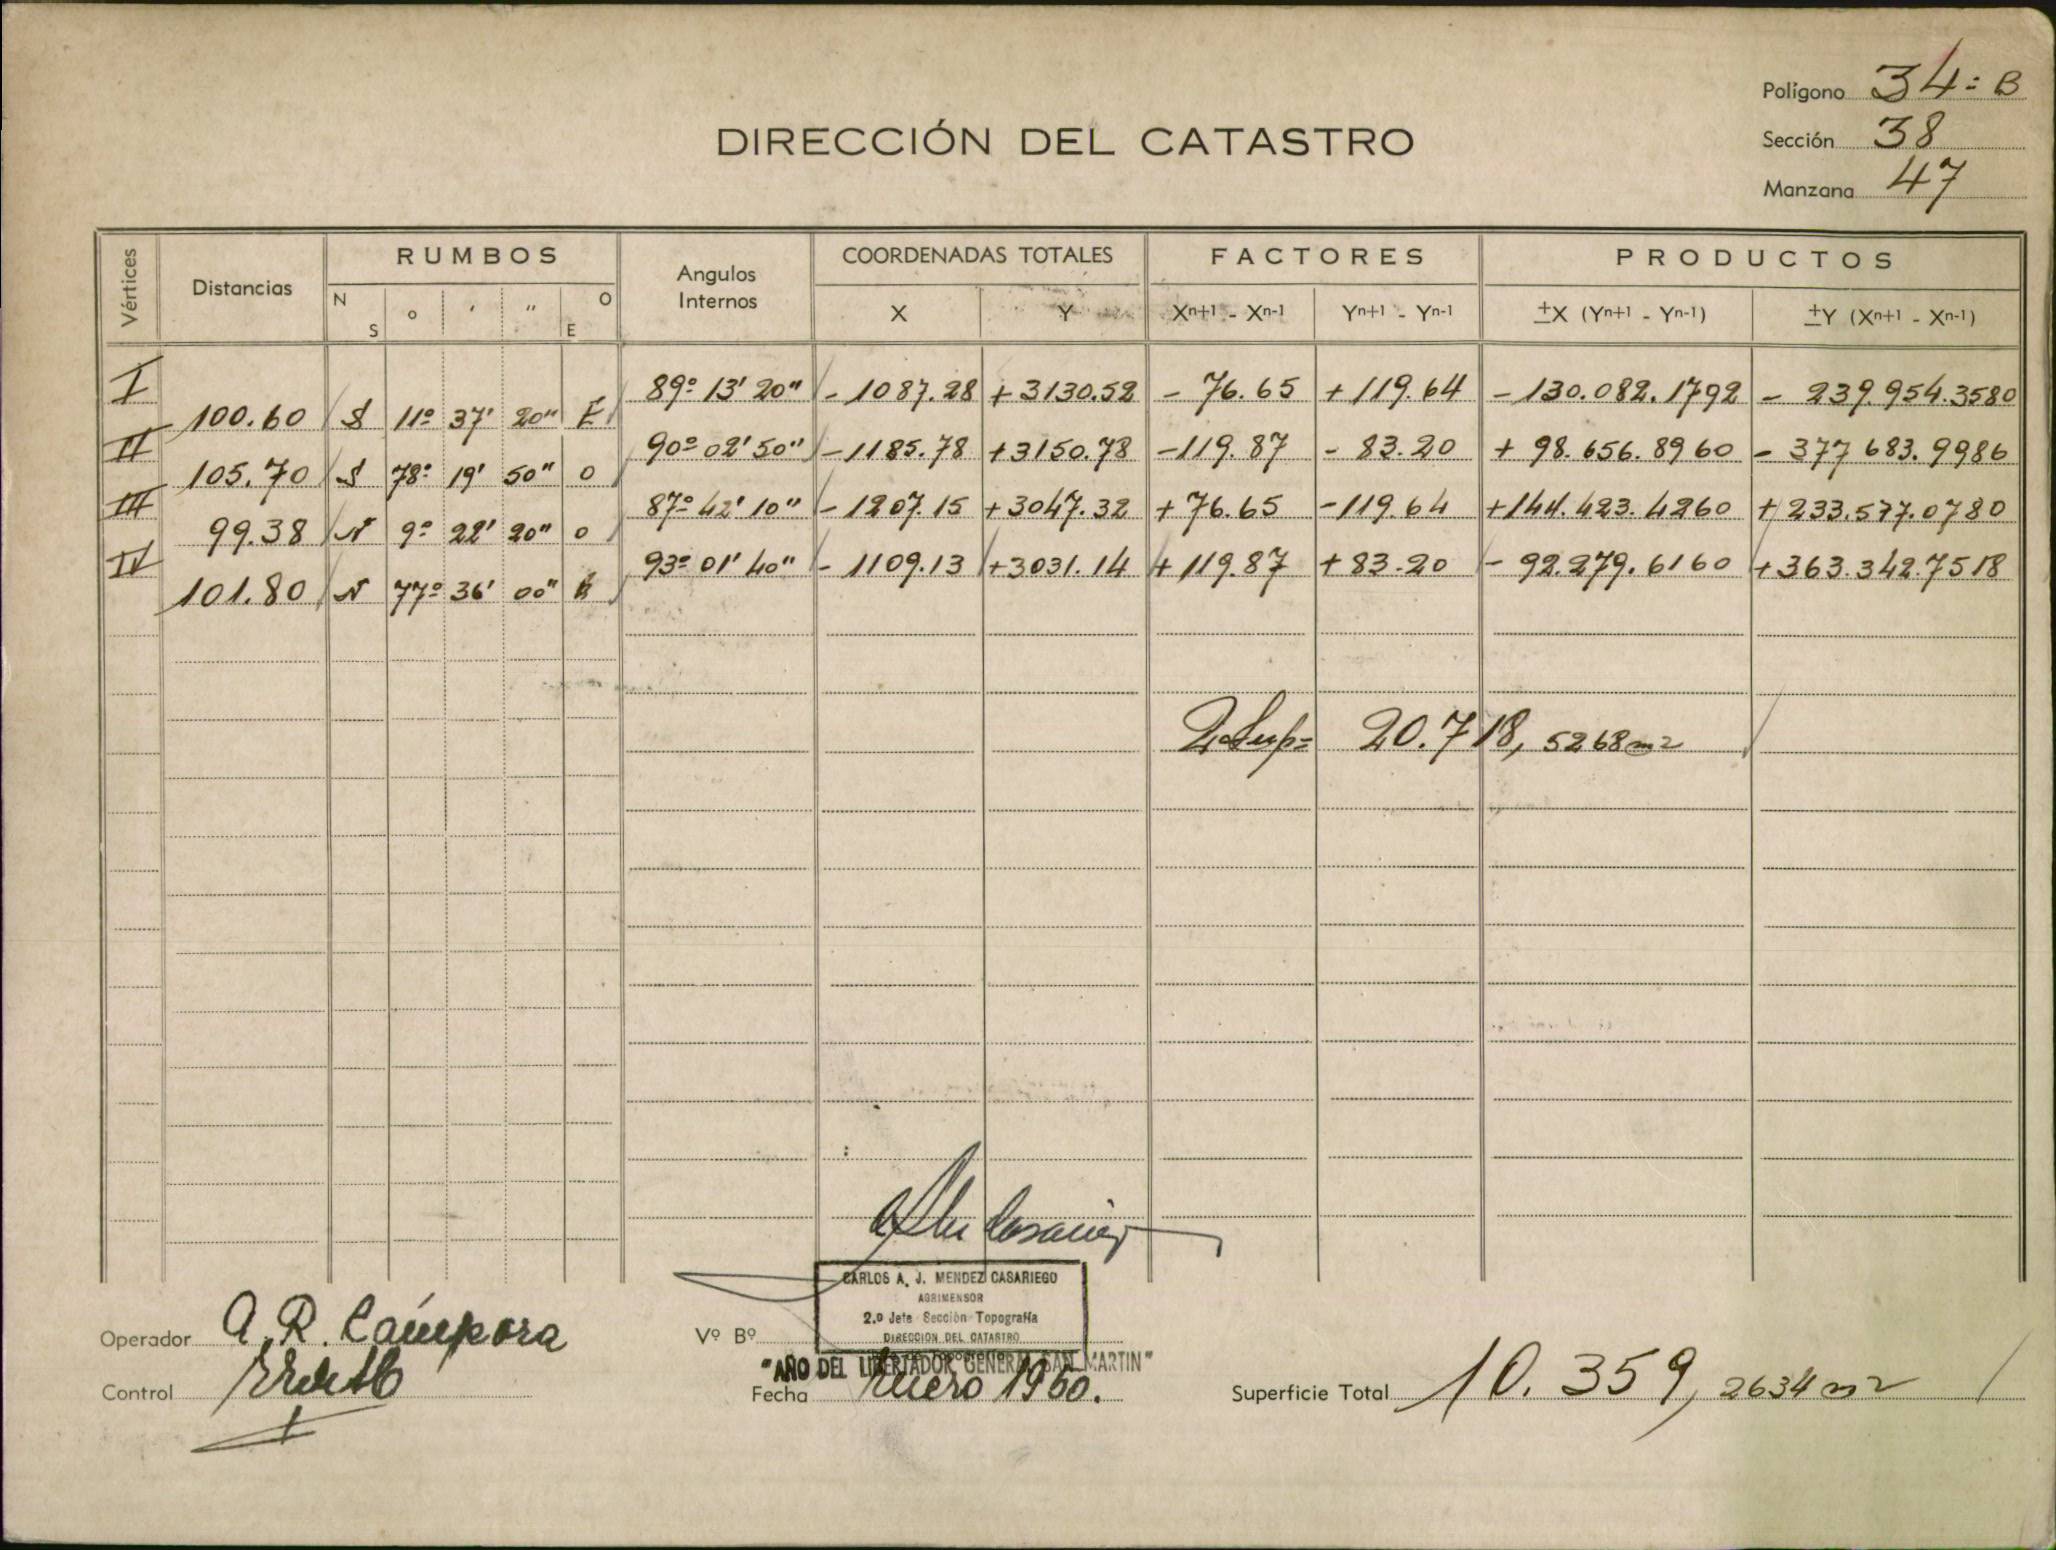 Polígono 34=B
DIRECCIÓN DEL CATASTRO
Sección 38
Manzana 47
Vértices Distancias RUMBOS Angulos Internos COORDENADAS TOTALES FACTORES PRODUCTOS
N S o ' " E O X Y Xn+1 - Xn-1 Yn+1 - Yn-1 ±X (Yn+1 - Yn-1) ±Y (Xn+1 - Xn-1)
I 89º 13' 20" - 1087.28 + 3130.52 - 76.65 + 119.64 - 130.082.1792 - 239.954.3580
100.60 S 11º 37' 20" E
II 90º 02' 50" - 1185.78 + 3150.78 - 119.87 - 83.20 + 98.656.8960 - 377 683.9986
105.70 S 78º 19' 50" O
III 87º 42' 10" - 1207.15 + 3047.32 + 76.65 - 119.64 + 144.423.4260 + 233.577.0780
99.38 N 9º 22' 20" O
IV 93º 01' 40" - 1109.13 + 3031.14 + 119.87 + 83.20 - 92.279.6160 + 363.342.7518
101.80 N 77º 36' 00" E
2 Sup= 20.718,5268 m2
CARLOS A. J. MENDEZ CASARIEGO
AGRIMENSOR
2.º Jefe Sección Topografía
DIRECCION DEL CATASTRO
Operador A. R. Cámpora Vº Bº
"AÑO DEL LIBERTADOR GENERAL SAN MARTIN"
Control Fecha Enero 1950. Superficie Total 10.359,2634 m2